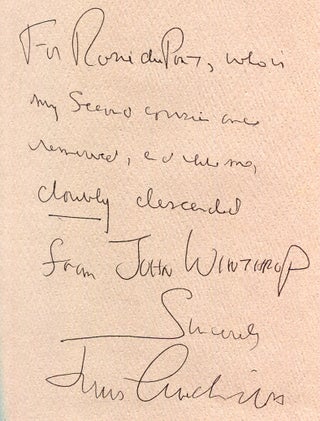 For Rosie duPont, who is
my Second cousin once
removed, and
doubly descended
from JOHN WINTHROP
Sincerely
Louis Auchincloss